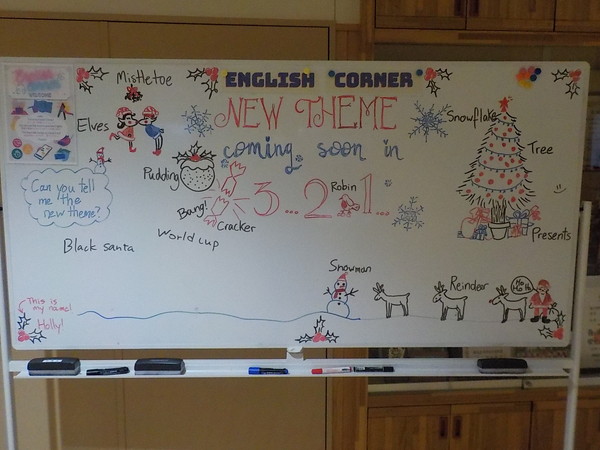 ENGLISH CORNER
Mistletoe
NEW THEME
Elves
Snowflake
coming soon in
Tree
Pudding
Can you tell
me the
new theme?
3...2...1...
Robin
Bang!
Cracker
World cup
Presents
Black santa
Snowman
Reindeer
Ho Ho Ho
This is
my name!
Holly!